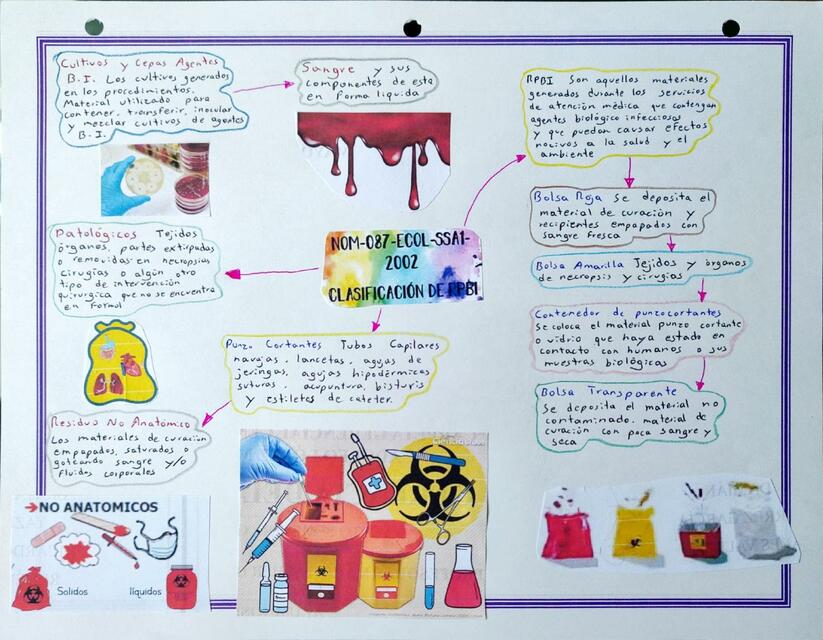 Cultivos y Cepas Agentes
B.I. Los cultivos generados
en los procedimientos.
Material utilizado para
contener, transferir, inocular
y mezclar cultivos de agentes
B.I.
Sangre y sus
componentes de esta
en forma liquida
RPBI Son aquellos materiales
generados durante los servicios
de atención médica que contengan
agentes biológico infecciosos
y que puedan causar efectos
nocivos a la salud y el
ambiente
Patológicos Tejidos
órganos, partes extirpadas
o removidas en necropsias
cirugías o algún otro
tipo de intervención
quirurgica que no se encuentra
en formol
NOM-087-ECOL-SSA1-
2002
CLASIFICACIÓN DE RPBI
Bolsa Roja Se deposita el
material de curación y
recipientes empapados con
sangre fresca
Bolsa Amarilla Tejidos y órganos
de necropsis y cirugias
Contenedor de punzocortantes
Se coloca el material punzo cortante
o vidrio que haya estado en
contacto con humanos o sus
muestras biológicas
Bolsa Transparente
Se deposita el material no
contaminado, material de
curación con poca sangre y
seca
Punzo Cortantes Tubos Capilares
navajas, lancetas, agujas de
jeringas, agujas hipodérmicas
suturas, acupuntura, bisturis
y estiletes de cateter.
Residuo No Anatómico
Los materiales de curación
empapados, saturados o
goteando sangre y/o
fluidos corporales
NO ANATOMICOS
Sólidos
líquidos